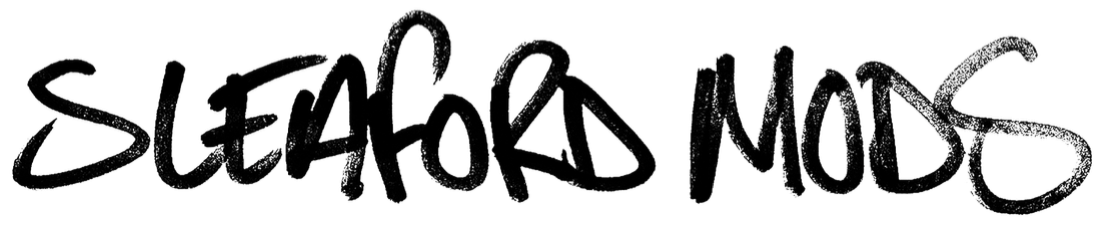 SLEAFORD MODS